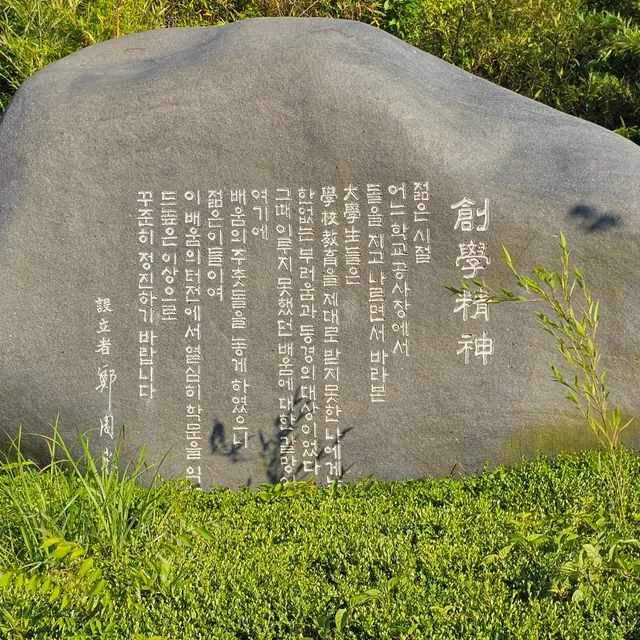 創學精神
젊은 시절
어느 학교 공사장에서
돌을 지고 나르면서 바라본
大學生들은
學校敎育을 제대로 받지 못한 나에게는
한없는 부러움과 동경의 대상이었다
그때 이루지 못했던 배움에 대한 갈망이
여기에
배움의 주춧돌을 놓게 하였으니
젊은이들이여
이 배움의 터전에서 열심히 학문을 익
드높은 이상으로
꾸준히 정진하기 바랍니다
設立者 鄭周永